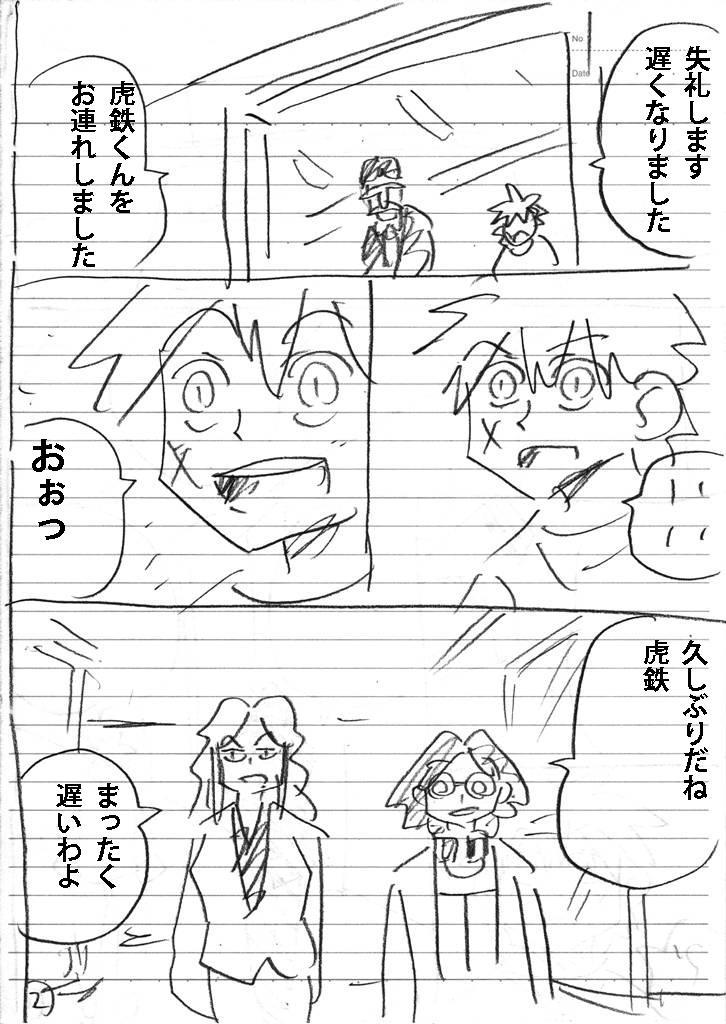 No
Date
失礼します
遅くなりました
虎鉄くんを
お連れしました
おぉっ
久しぶりだね
虎鉄
まったく
遅いわよ
2